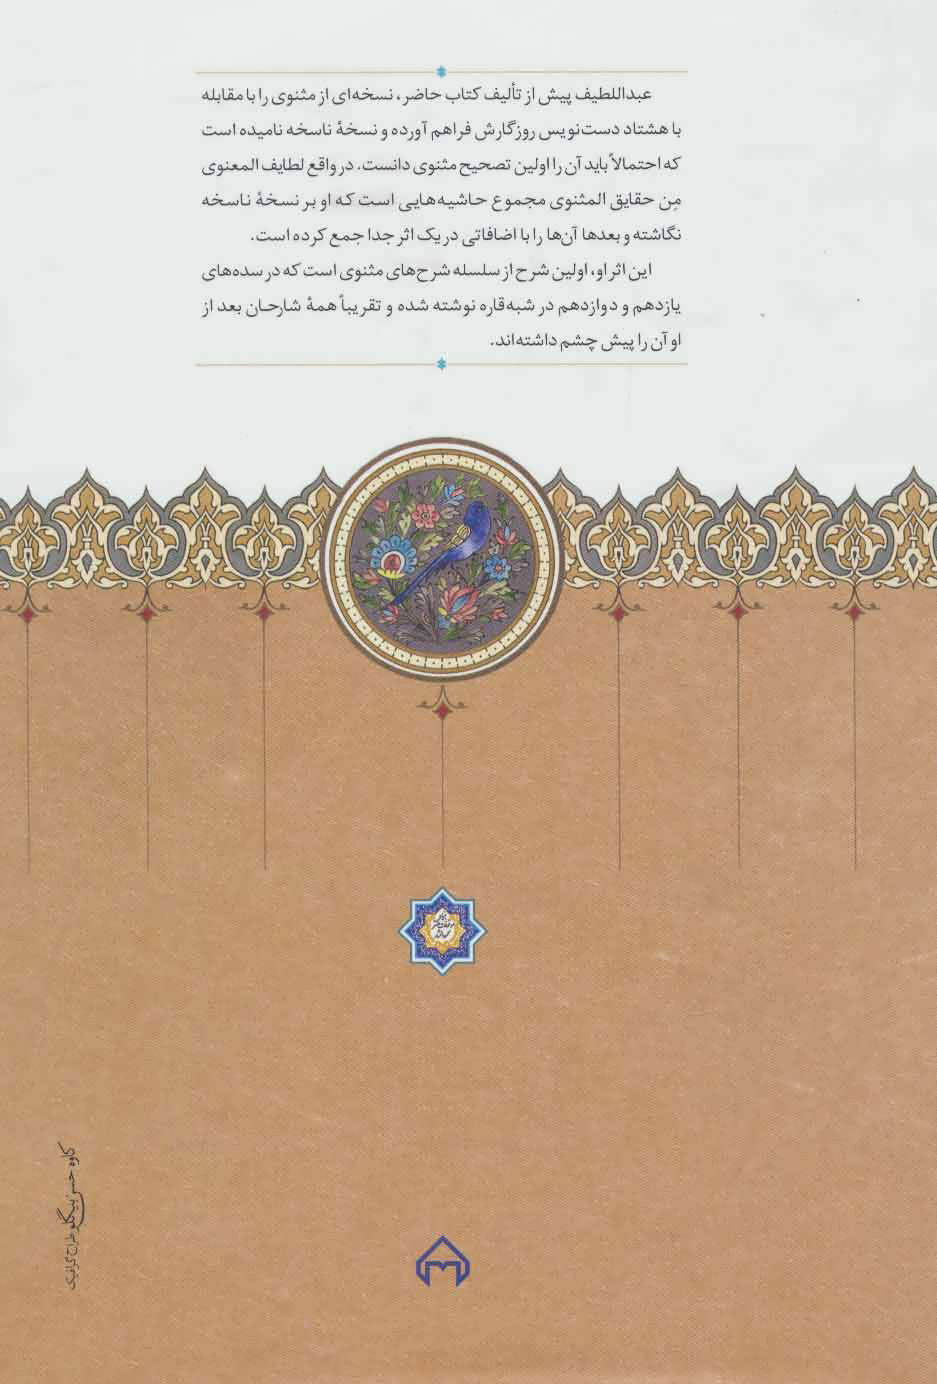 عبداللطیف پیش از تألیف کتاب حاضر، نسخه‌ای از مثنوی را با مقابله
با هشتاد دست‌نویس روزگارش فراهم آورده و نسخهٔ ناسخه نامیده است
که احتمالاً باید آن را اولین تصحیح مثنوی دانست. در واقع لطایف المعنوی
مِن حقایق المثنوی مجموع حاشیه‌هایی است که او بر نسخهٔ ناسخه
نگاشته و بعدها آن‌ها را با اضافاتی در یک اثر جدا جمع کرده است.
این اثر او، اولین شرح از سلسله شرح‌های مثنوی است که در سده‌های
یازدهم و دوازدهم در شبه‌قاره نوشته شده و تقریباً همهٔ شارحان بعد از
او آن را پیش چشم داشته‌اند.
کاوه حسن بیگلو طراح گرافیک